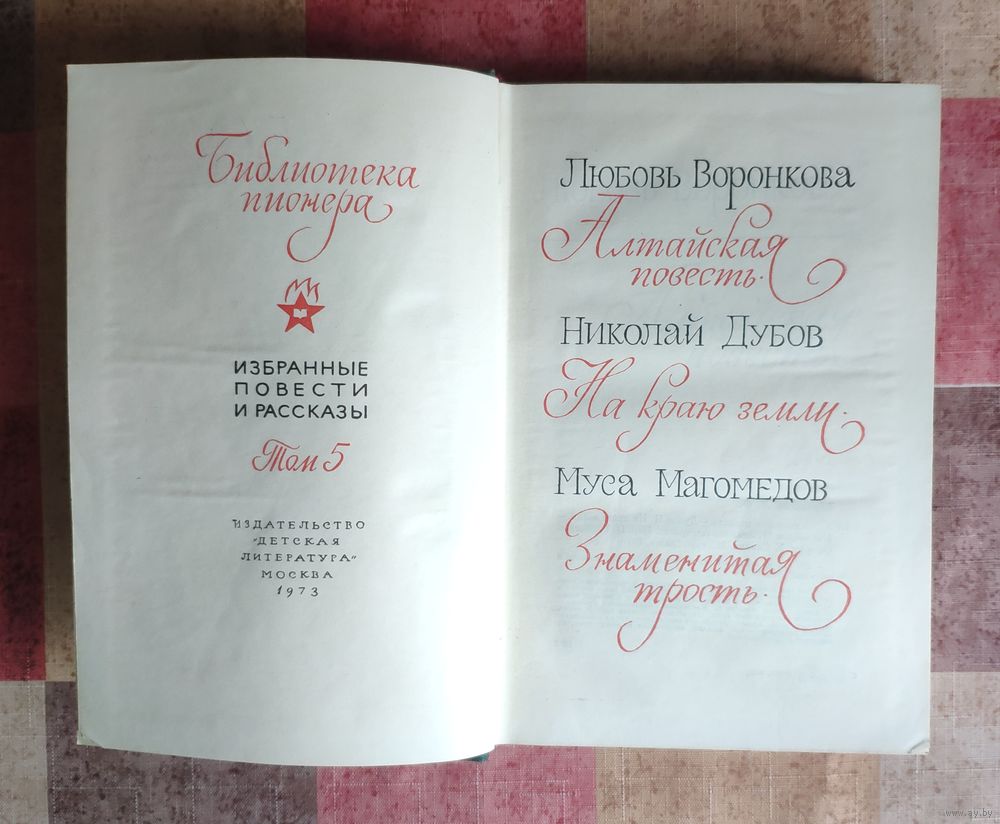 Библиотека
пионера
ИЗБРАННЫЕ
ПОВЕСТИ
И РАССКАЗЫ
Том 5
ИЗДАТЕЛЬСТВО
"ДЕТСКАЯ
ЛИТЕРАТУРА"
МОСКВА
1973
Любовь Воронкова
Алтайская
повесть.
Николай Дубов
На краю земли.
Муса Магомедов
Знаменитая
трость.
www.ay.by